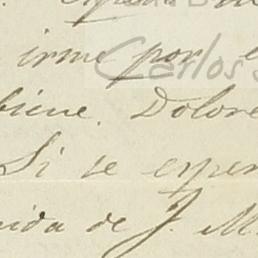 irme por
Carlos
biene. Dolore
Si se esper
ida de J. M